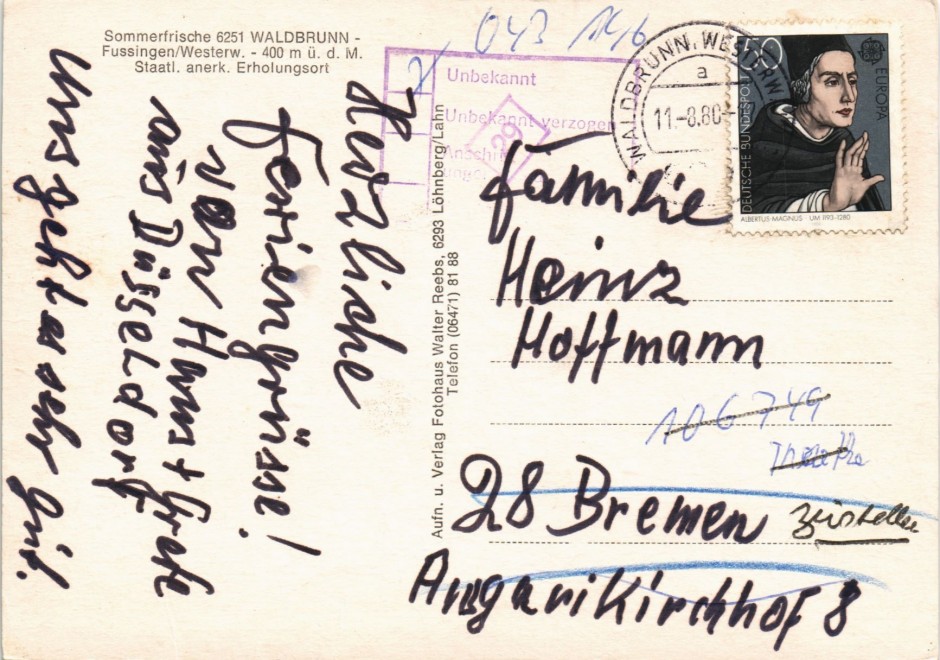 Sommerfrische 6251 WALDBRUNN -
Fussingen/Westerw. - 400 m ü. d. M.
Staatl. anerk. Erholungsort
Herzliche
Feriengrüsse!
von Hans + Grete
aus Düsseldorf
Uns geht es sehr gut.
Aufn. u. Verlag Fotohaus Walter Reebs, 6293 Löhnberg/Lahn
Telefon (06471) 81 88
043 146
Unbekannt
Unbekannt verzogen
Anschrift
29
WALDBRUNN, WESTERW
a
11.-8.80
50
EUROPA
DEUTSCHE BUNDESPOST
ALBERTUS MAGNUS · UM 1193-1280
Familie
Heinz
Hoffmann
106 749
28 Bremen
zustellen
Ansgarikirchhof 8